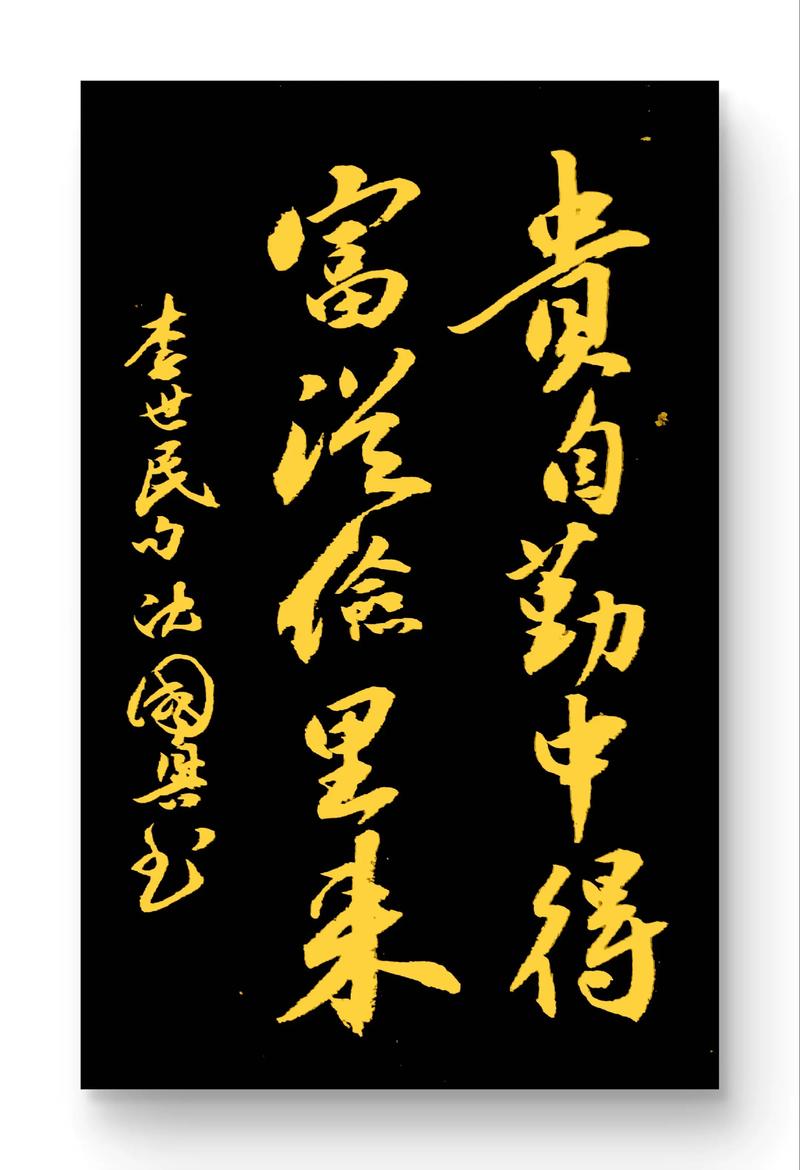 貴自勤中得
富從儉里来
李世民句 沈國興书